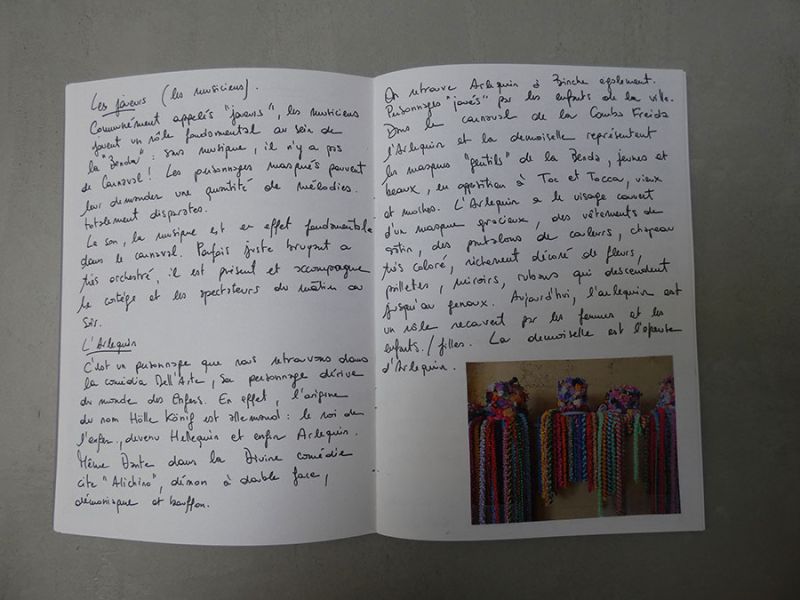 Les joueurs (les musiciens).
Communément appelés "joueurs", les musiciens
jouent un rôle fondamental au sein de
la "Benda" : sans musique, il n'y a pas
de Carnaval ! Les personnages masqués peuvent
leur demander une quantité de mélodies
totalement disparates.
Le son, la musique est en effet fondamentale
dans le carnaval. Parfois juste bruyant ou
très orchestré, il est présent et accompagne
le cortège et les spectateurs du matin au
soir.
L'Arlequin
C'est un personnage que nous retrouvons dans
la comédia Dell'Arte, sa personnage dérive
du monde des Enfers. En effet, l'origine
du nom Hölle König est allemand : le roi de
l'enfer, devenu Hellequin et enfin Arlequin.
Même Dante dans la Divine comédie
cite "Alichino", démon à double face,
démoniaque et bouffon.
On retrouve Arlequin à Binche également.
Personnages "joués" par les enfants de la ville.
Dans le carnaval de la Comba Freida
l'Arlequin et la demoiselle représentent
les masques "gentils" de la Benda, jeunes et
beaux, en opposition à Toc et Tocca, vieux
et moches. L'Arlequin a le visage couvert
d'un masque gracieux, des vêtements de
satin, des pantalons de couleurs, chapeau
très coloré, richement décoré de fleurs,
paillettes, miroirs, rubans qui descendent
jusqu'au genoux. Aujourd'hui, l'arlequin est
un rôle recouvert par les femmes et les
enfants/filles. La demoiselle est l'épouse
d'Arlequin.